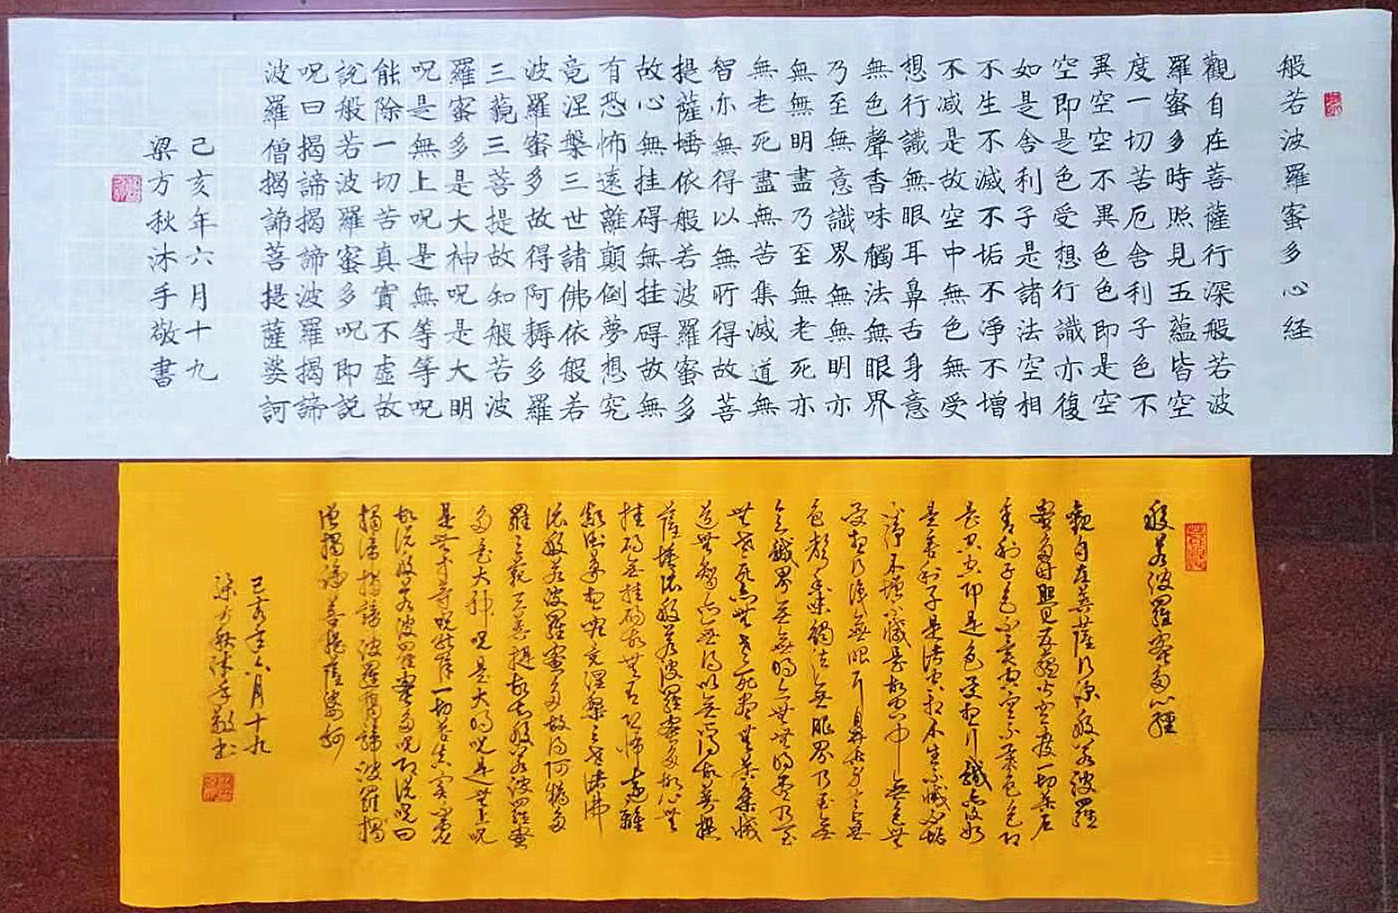 般若波羅蜜多心経
觀自在菩薩行深般若波
羅蜜多時照見五蘊皆空
度一切苦厄舍利子色不
異空空不異色色即是空
空即是色受想行識亦復
如是舍利子是諸法空相
不生不滅不垢不淨不增
不减是故空中無色無受
想行識無眼耳鼻舌身意
無色聲香味觸法無眼界
乃至無意識界無無明亦
無無明盡乃至無老死亦
無老死盡無苦集滅道無
智亦無得以無所得故菩
提薩埵依般若波羅蜜多
故心無挂碍無挂碍故無
有恐怖遠離顛倒夢想究
竟涅槃三世諸佛依般若
波羅蜜多故得阿耨多羅
三藐三菩提故知般若波
羅蜜多是大神呪是大明
呪是無上呪是無等等呪
能除一切苦真實不虛故
說般若波羅蜜多呪即說
呪曰揭諦揭諦波羅揭諦
波羅僧揭諦菩提薩婆訶
己亥年六月十九
梁方秋沐手敬書
般若波羅蜜多心經
觀自在菩薩行深般若波羅
蜜多時照見五蘊皆空度一切苦厄
舍利子色不異空空不異色色即
是空空即是色受想行識亦復如
是舍利子是諸法空相不生不滅不垢
不淨不增不減是故空中無色無
受想行識無眼耳鼻舌身意無
色聲香味觸法無眼界乃至無
意識界無無明亦無無明盡乃至
無老死亦無老死盡無苦集滅
道無智亦無得以無所得故菩提
薩埵依般若波羅蜜多故心無
挂碍無挂碍故無有恐怖遠離
顛倒夢想究竟涅槃三世諸佛
依般若波羅蜜多故得阿耨多
羅三藐三菩提故知般若波羅蜜
多是大神呪是大明呪是無上呪
是無等等呪能除一切苦真實不虛
故說般若波羅蜜多呪即說呪曰
揭諦揭諦波羅揭諦波羅揭
僧揭諦菩提薩婆訶
己亥年六月十九
梁方秋沐手敬書